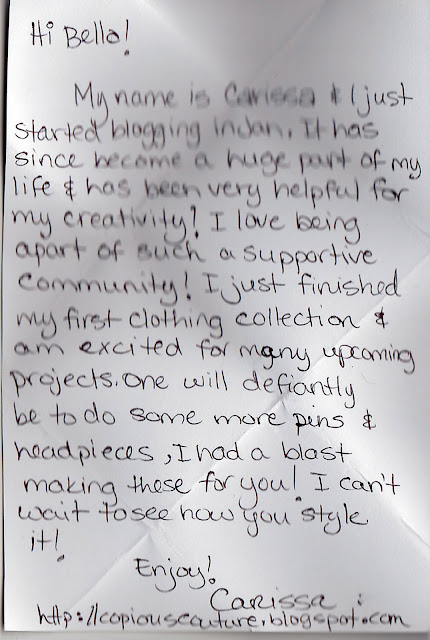 Hi Bella!
My name is Carissa & I just
started blogging in Jan. It has
since become a huge part of my
life & has been very helpful for
my creativity! I love being
apart of such a supportive
community! I just finished
my first clothing collection &
am excited for many upcoming
projects. One will defiantly
be to do some more pins &
headpieces, I had a blast
making these for you! I can't
wait to see how you style
it!
Enjoy!
Carissa :
http://copiouscouture.blogspot.com